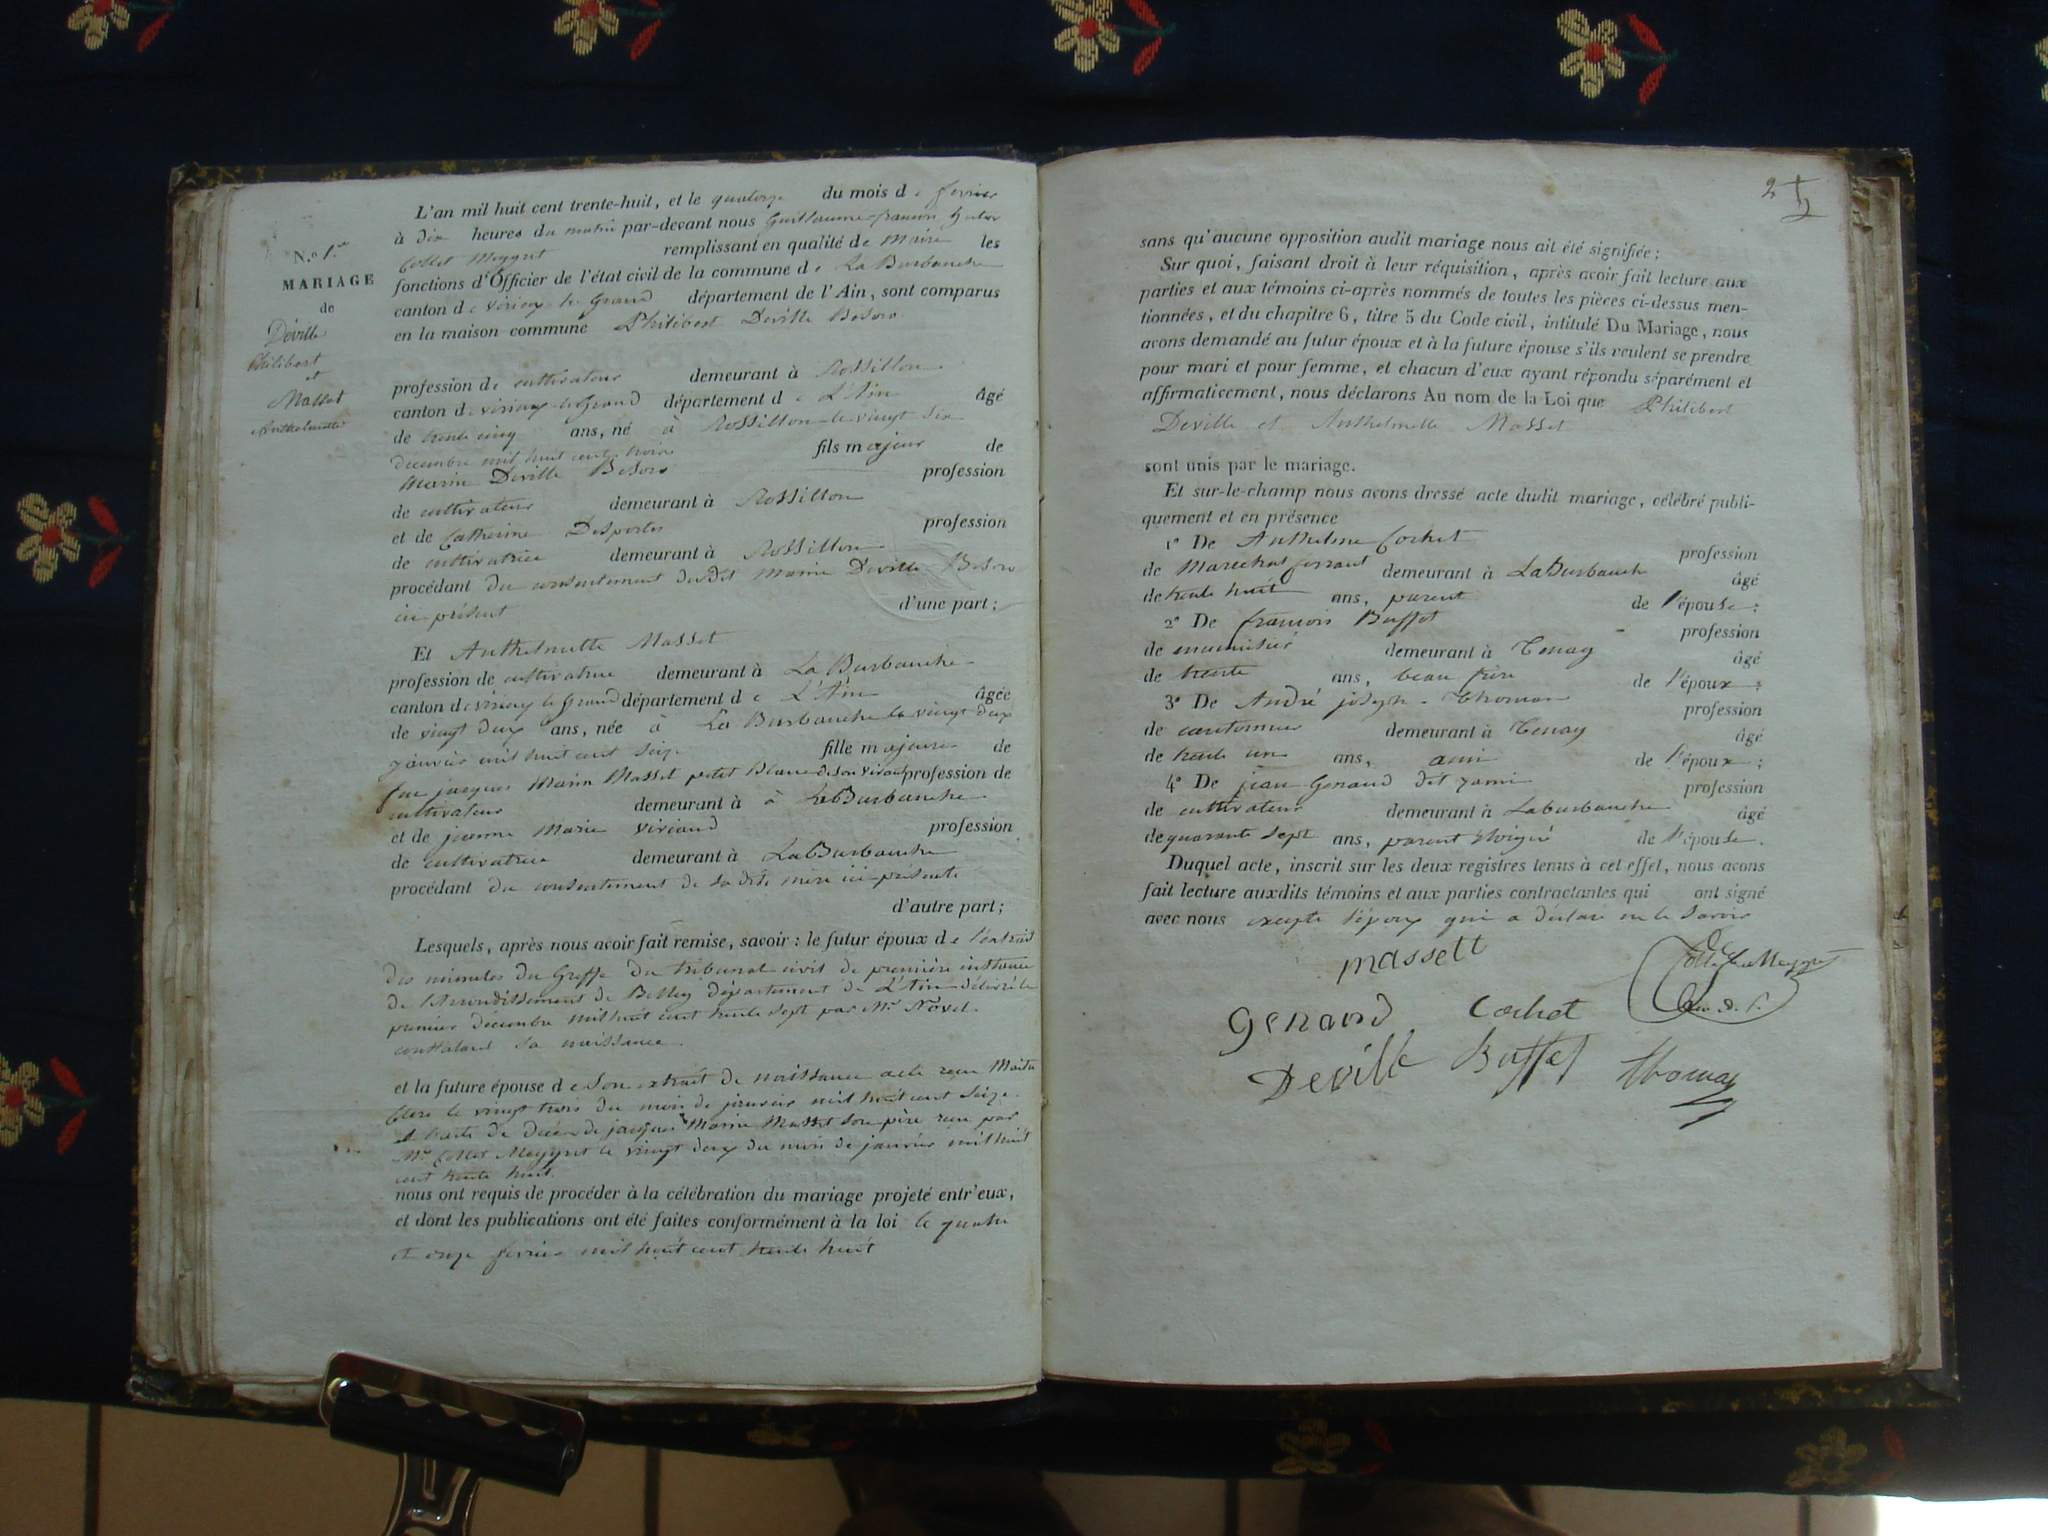 N.o 1.er
MARIAGE
de
Deville
Philibert
et
Masset
Anthelmette
L'an mil huit cent trente-huit, et le quatorze du mois de fevrier
à dix heures du matin par-devant nous Guillaume françois
Collet Meygret remplissant en qualité de Maire les
fonctions d'Officier de l'état civil de la commune de La Burbanche
canton de virieux le Grand département de l'Ain, sont comparus
en la maison commune Philibert Deville Besson
profession de cultivateur demeurant à Rossillon
canton de virieux le Grand département de L'Ain âgé
de trente cinq ans, né à Rossillon le vingt six
decembre mil huit cent trois fils majeur de
Marin Deville Besson profession
de cultivateur demeurant à Rossillon
et de Catherine Desportes profession
de cultivatrice demeurant à Rossillon
procédant du consentement dudit Marin Deville Besson
ici présent d'une part;
Et Anthelmette Masset
profession de cultivatrice demeurant à La Burbanche
canton de virieux le Grand département de L'Ain âgée
de vingt deux ans, née à La Burbanche le vingt deux
janvier mil huit cent seize fille majeure de
feu jacques Marin Masset petit profession de
cultivateur demeurant à à La Burbanche
et de jeanne Marie Viviand profession
de cultivatrice demeurant à La Burbanche
procédant du consentement de sa dite mère ici présente
d'autre part;
Lesquels, après nous avoir fait remise, savoir: le futur époux de l'extrait
des minutes du Greffe du tribunal civil de première instance
de l'Arrondissement de Belley département de L'Ain délivré le
premier décembre mil huit cent trente sept par Mr. Novel
constatant sa naissance.
et la future épouse de son extrait de naissance acte reçu
le vingt trois du mois de janvier mil huit cent seize.
et l'acte de décès de jacques Marin Masset son père reçu par
Mr. Collet Meygret le vingt deux du mois de janvier mil huit
cent trente huit.
nous ont requis de procéder à la célébration du mariage projeté entr'eux,
et dont les publications ont été faites conformément à la loi le quatre
et onze fevrier mil huit cent trente huit
2
sans qu'aucune opposition audit mariage nous ait été signifiée;
Sur quoi, faisant droit à leur réquisition, après avoir fait lecture aux
parties et aux témoins ci-après nommés de toutes les pièces ci-dessus men-
tionnées, et du chapitre 6, titre 5 du Code civil, intitulé Du Mariage, nous
avons demandé au futur époux et à la future épouse s'ils veulent se prendre
pour mari et pour femme, et chacun d'eux ayant répondu séparément et
affirmativement, nous déclarons Au nom de la Loi que Philibert
Deville et Anthelmette Masset
sont unis par le mariage.
Et sur-le-champ nous avons dressé acte dudit mariage, célébré publi-
quement et en présence
1º De Anthelme Cochet profession
de Marechal ferrant demeurant à La Burbanche âgé
de trente huit ans, parent de l'épouse;
2º De françois Buffet profession
de menuisier demeurant à Tenay âgé
de trente ans, beau frère de l'époux;
3º De André joseph Thomas profession
de cantonnier demeurant à Tenay âgé
de trente un ans, ami de l'époux;
4º De jean Genaud dit profession
de cultivateur demeurant à Laburbanche âgé
de quarante sept ans, parent éloigné de l'épouse.
Duquel acte, inscrit sur les deux registres tenus à cet effet, nous avons
fait lecture auxdits témoins et aux parties contractantes qui ont signé
avec nous excepté l'époux qui a déclaré ne le savoir
massett
Collet Meygret
Genaud Cochet
Deville Buffet Thomas